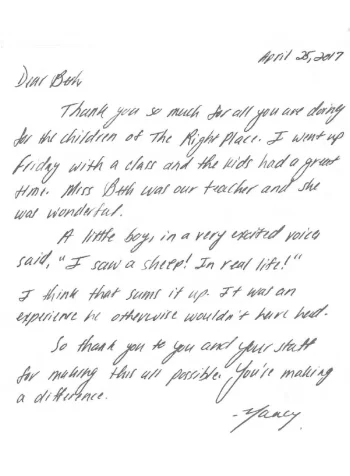 April 25, 2017
Dear Beth
Thank you so much for all you are doing
for the children of The Right Place. I went up
Friday with a class and the kids had a great
time. Miss Beth was our teacher and she
was wonderful.
A little boy, in a very excited voice,
said, "I saw a sheep! In real life!"
I think that sums it up. It was an
experience he otherwise wouldn't have had.
So thank you to you and your staff
for making this all possible. You're making
a difference.
-Nancy